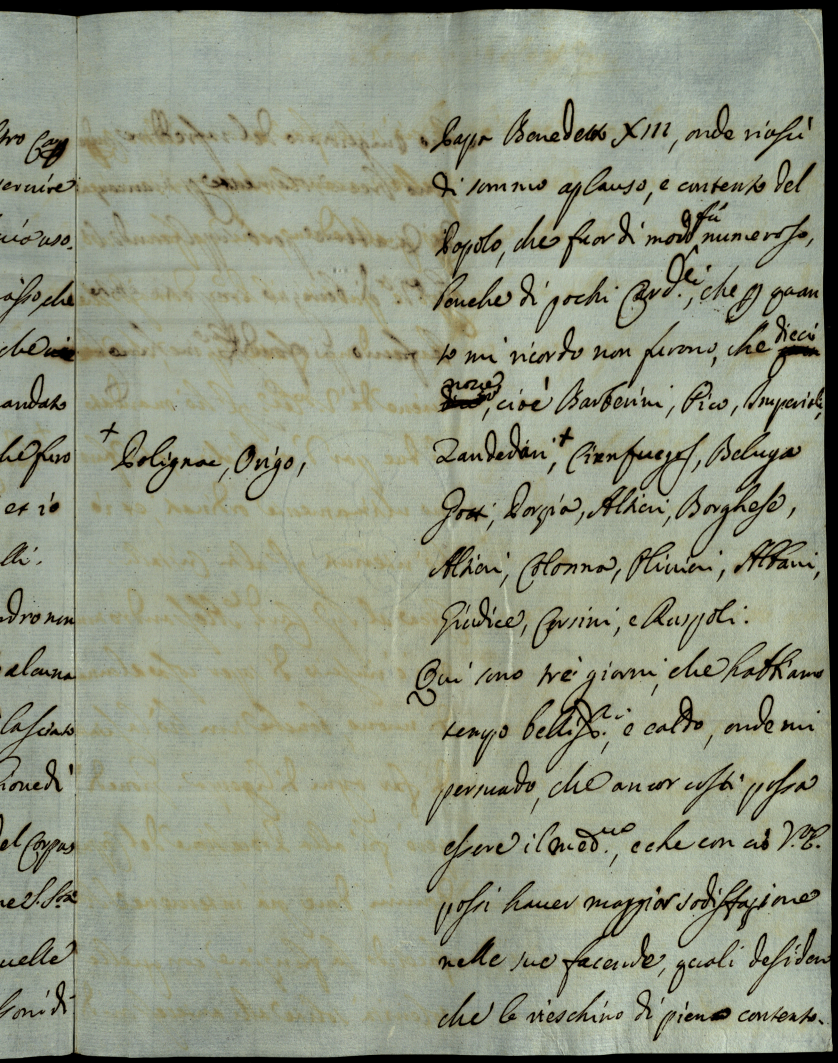 tro
servire
uso.
che
che
andato
che furo
et io
lli.
dro non
alcuna
lasciato
iovedì
el Corpus
ne S. Sta
uelle
soni di
Papa Benedetto XIII, onde riusci
di sommo aplauso, e contento del
Popolo, che fuor di modo fù numeroso,
benche di pochi Cardli, che p quan
to mi ricordo non furono, che dieci
nove, cioè Barberini, Pico, Imperiali,
Zandedari, + Cienfuegos, Beluga
+ Polignac, Origo,
Gotti, Porzia, Altieri, Borghese,
Altieri, Colonna, Olivieri, Albani,
Giudice, Corsini, e Ruspoli.
Qui sono tré giorni, che habbiamo
tempo belliss.º, e caldo, onde mi
persuado, che ancor costi possa
essere il med.mo, e che con ciò V. E.
possi haver maggior sodisfazione
nelle sue facende, quali desidero
che le rieschino di pieno contento.